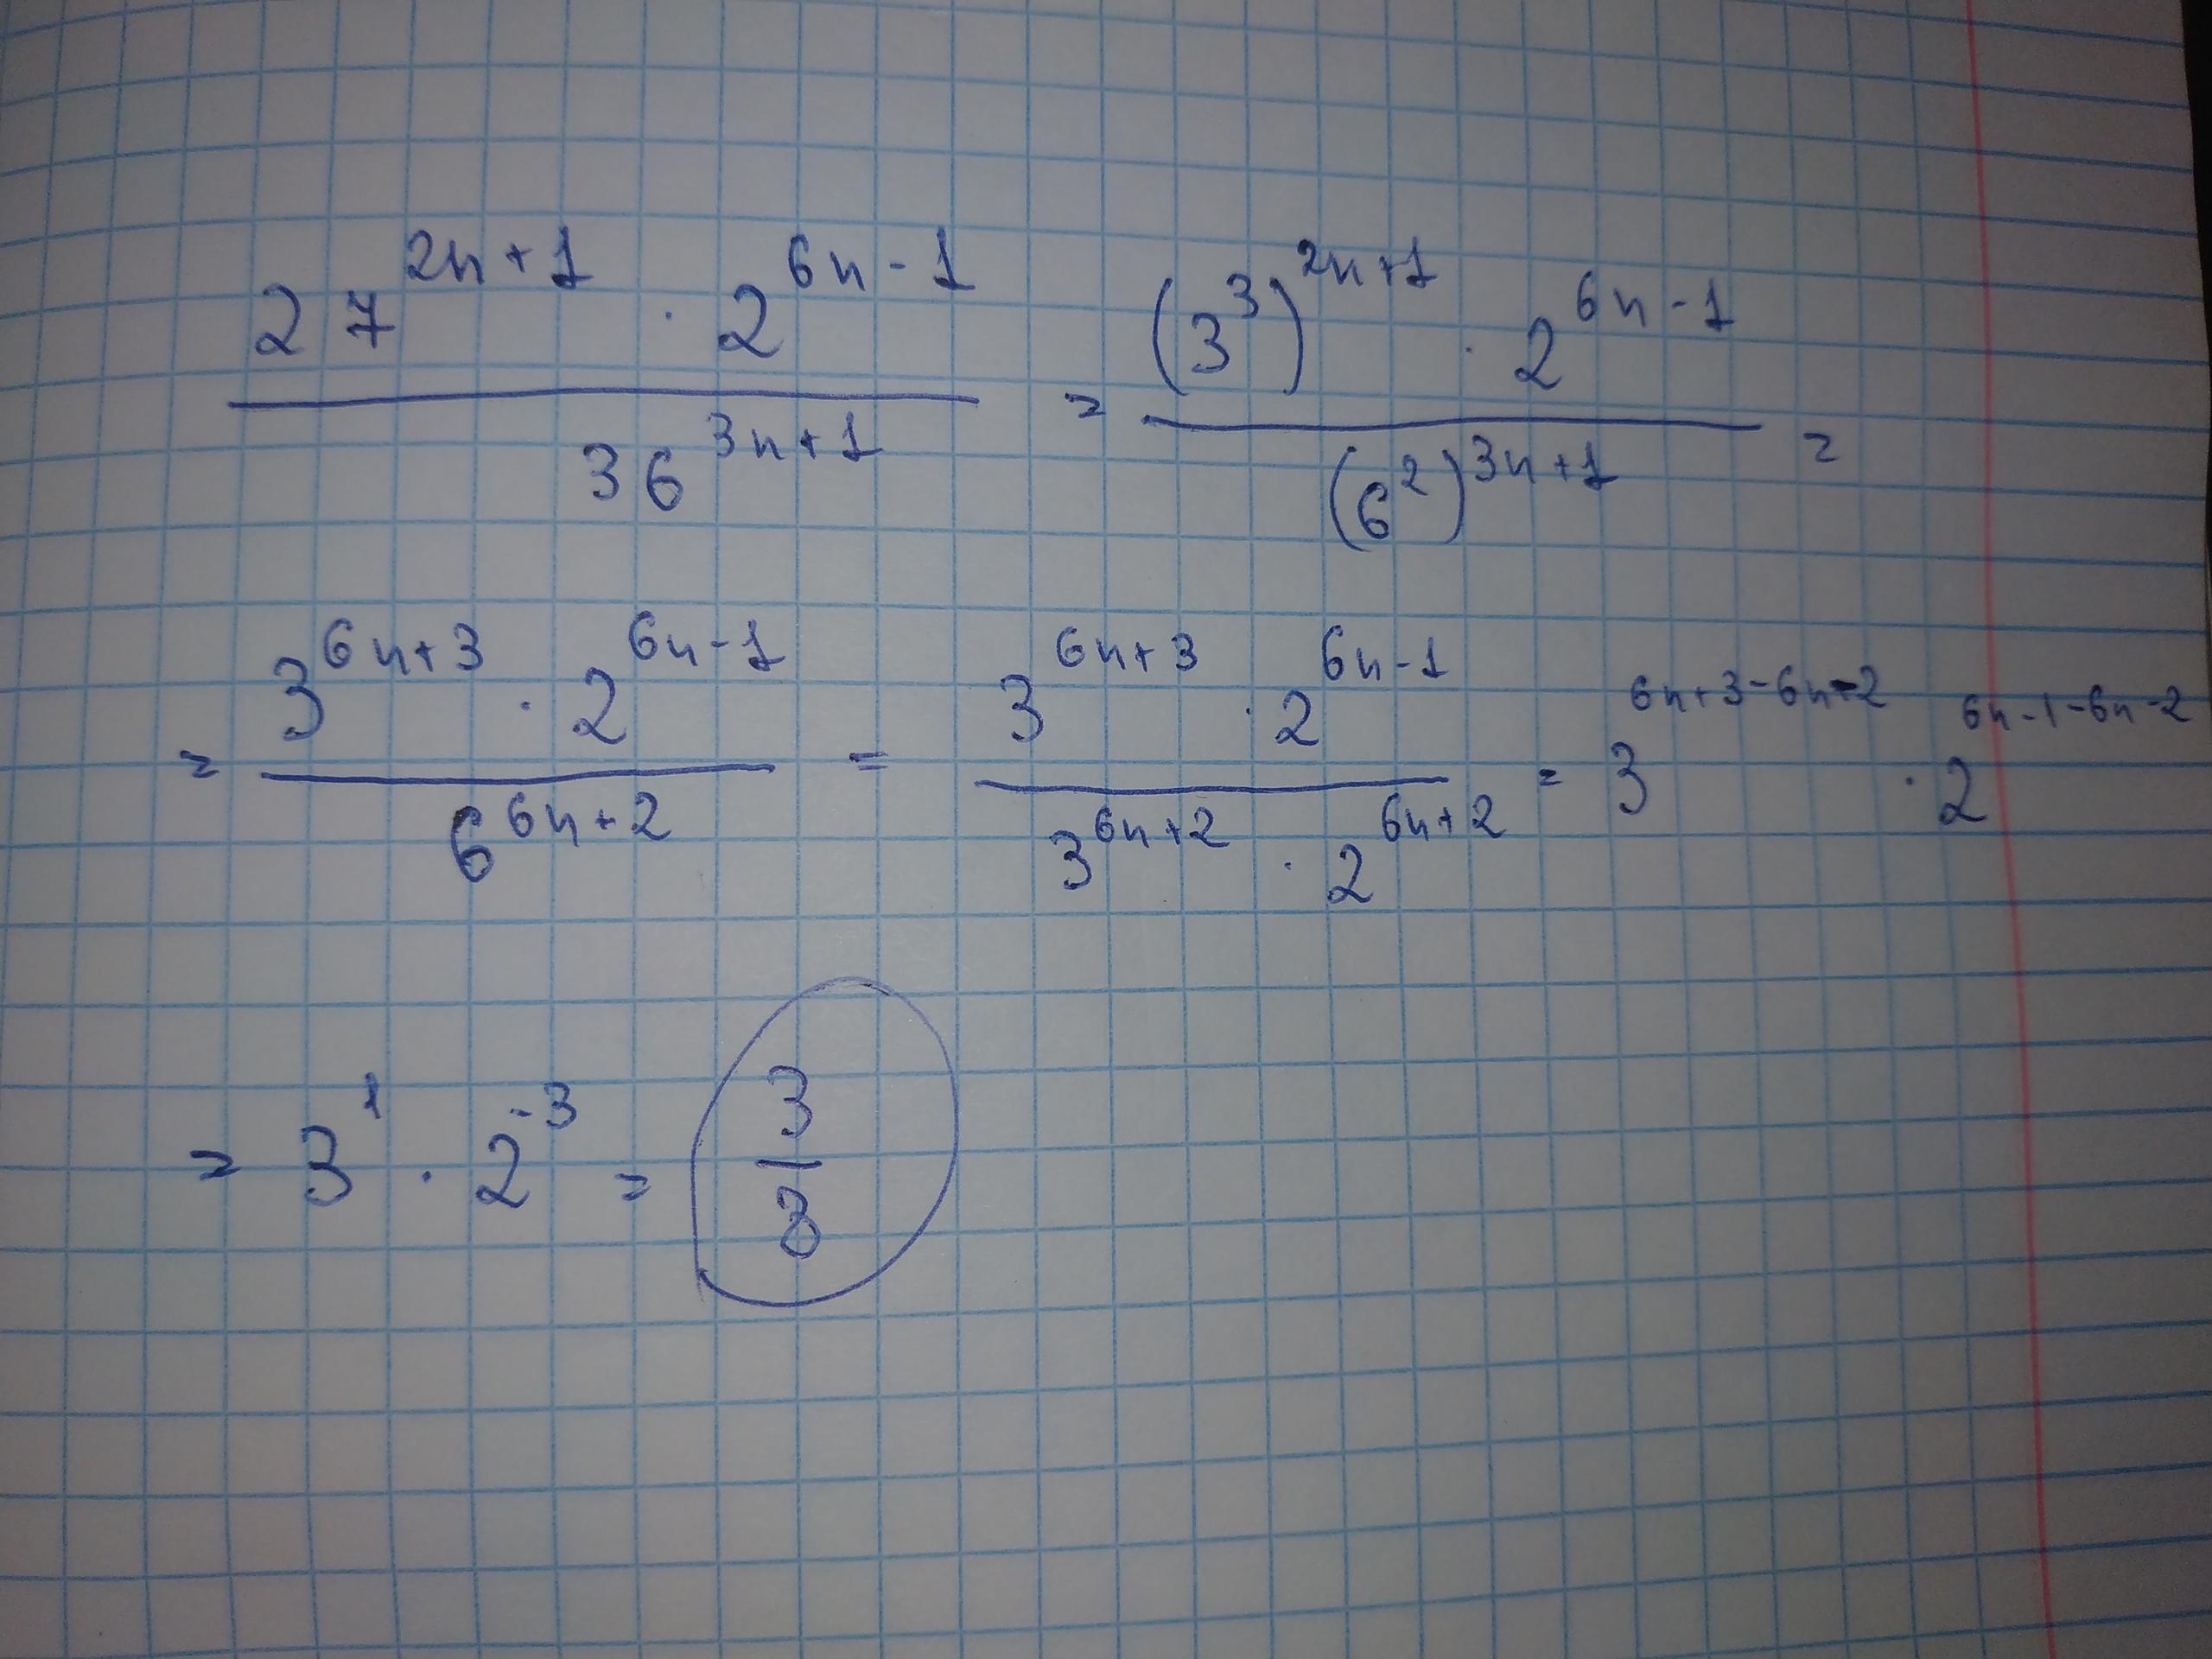 27^(2n+1) · 2^(6n-1) / 36^(3n+1) = (3^3)^(2n+1) · 2^(6n-1) / (6^2)^(3n+1) =
= 3^(6n+3) · 2^(6n-1) / 6^(6n+2) = 3^(6n+3) · 2^(6n-1) / 3^(6n+2) · 2^(6n+2) = 3^(6n+3-6n-2) · 2^(6n-1-6n-2)
= 3^1 · 2^(-3) = 3/8